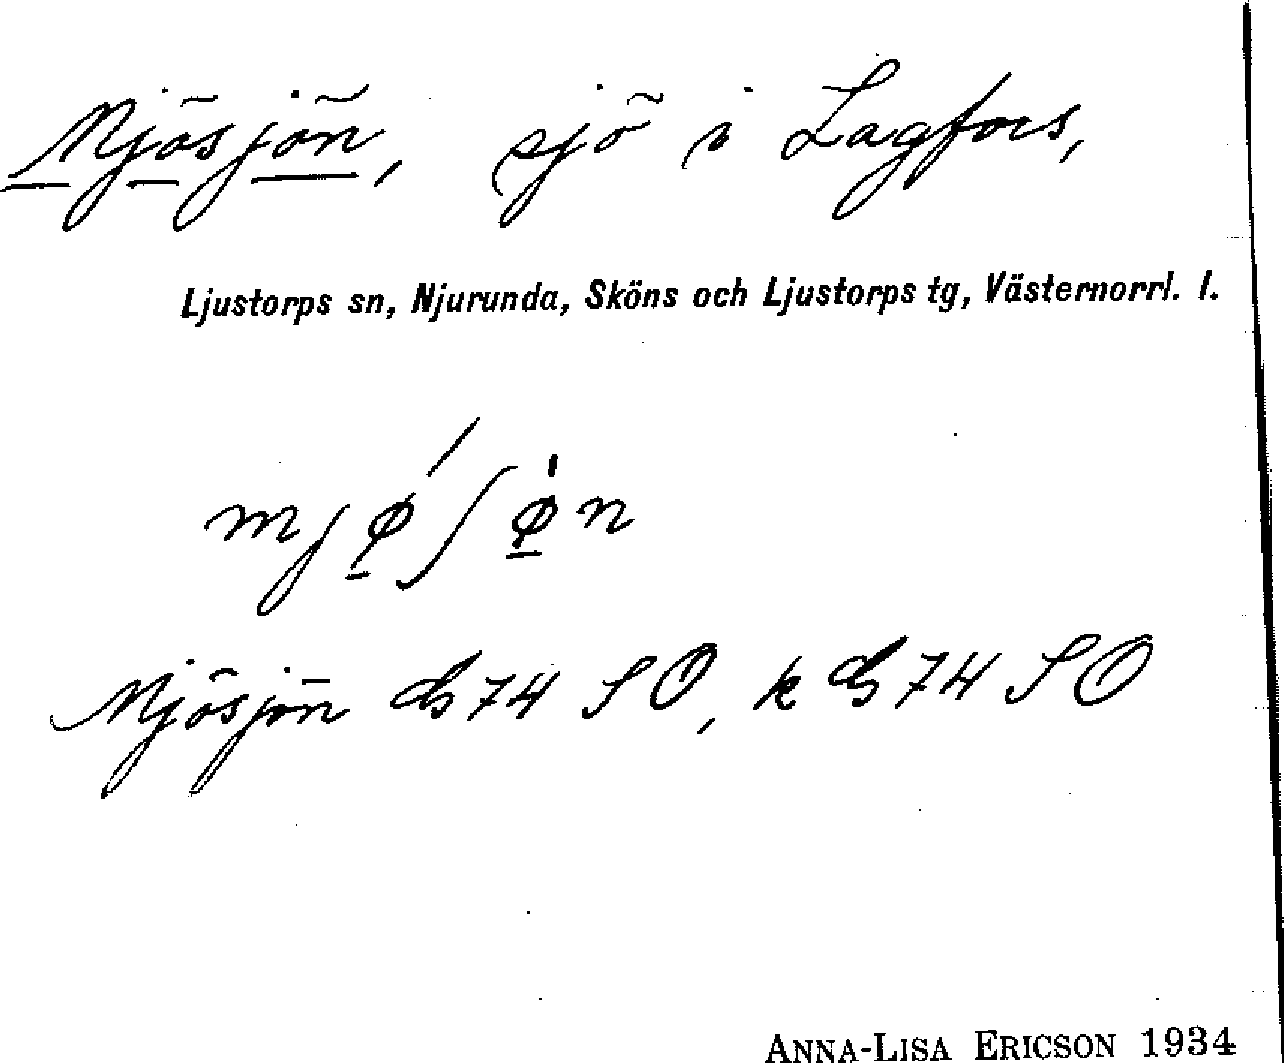 Mjösjön, sjö i Lagfors,
Ljustorps sn, Njurunda, Sköns och Ljustorps tg, Västernorrl. l.
mjǿ̲ʃø̲̀n
Mjösjön Gs 74 SO, k Gs 74 SO
ANNA-LISA ERICSON 1934